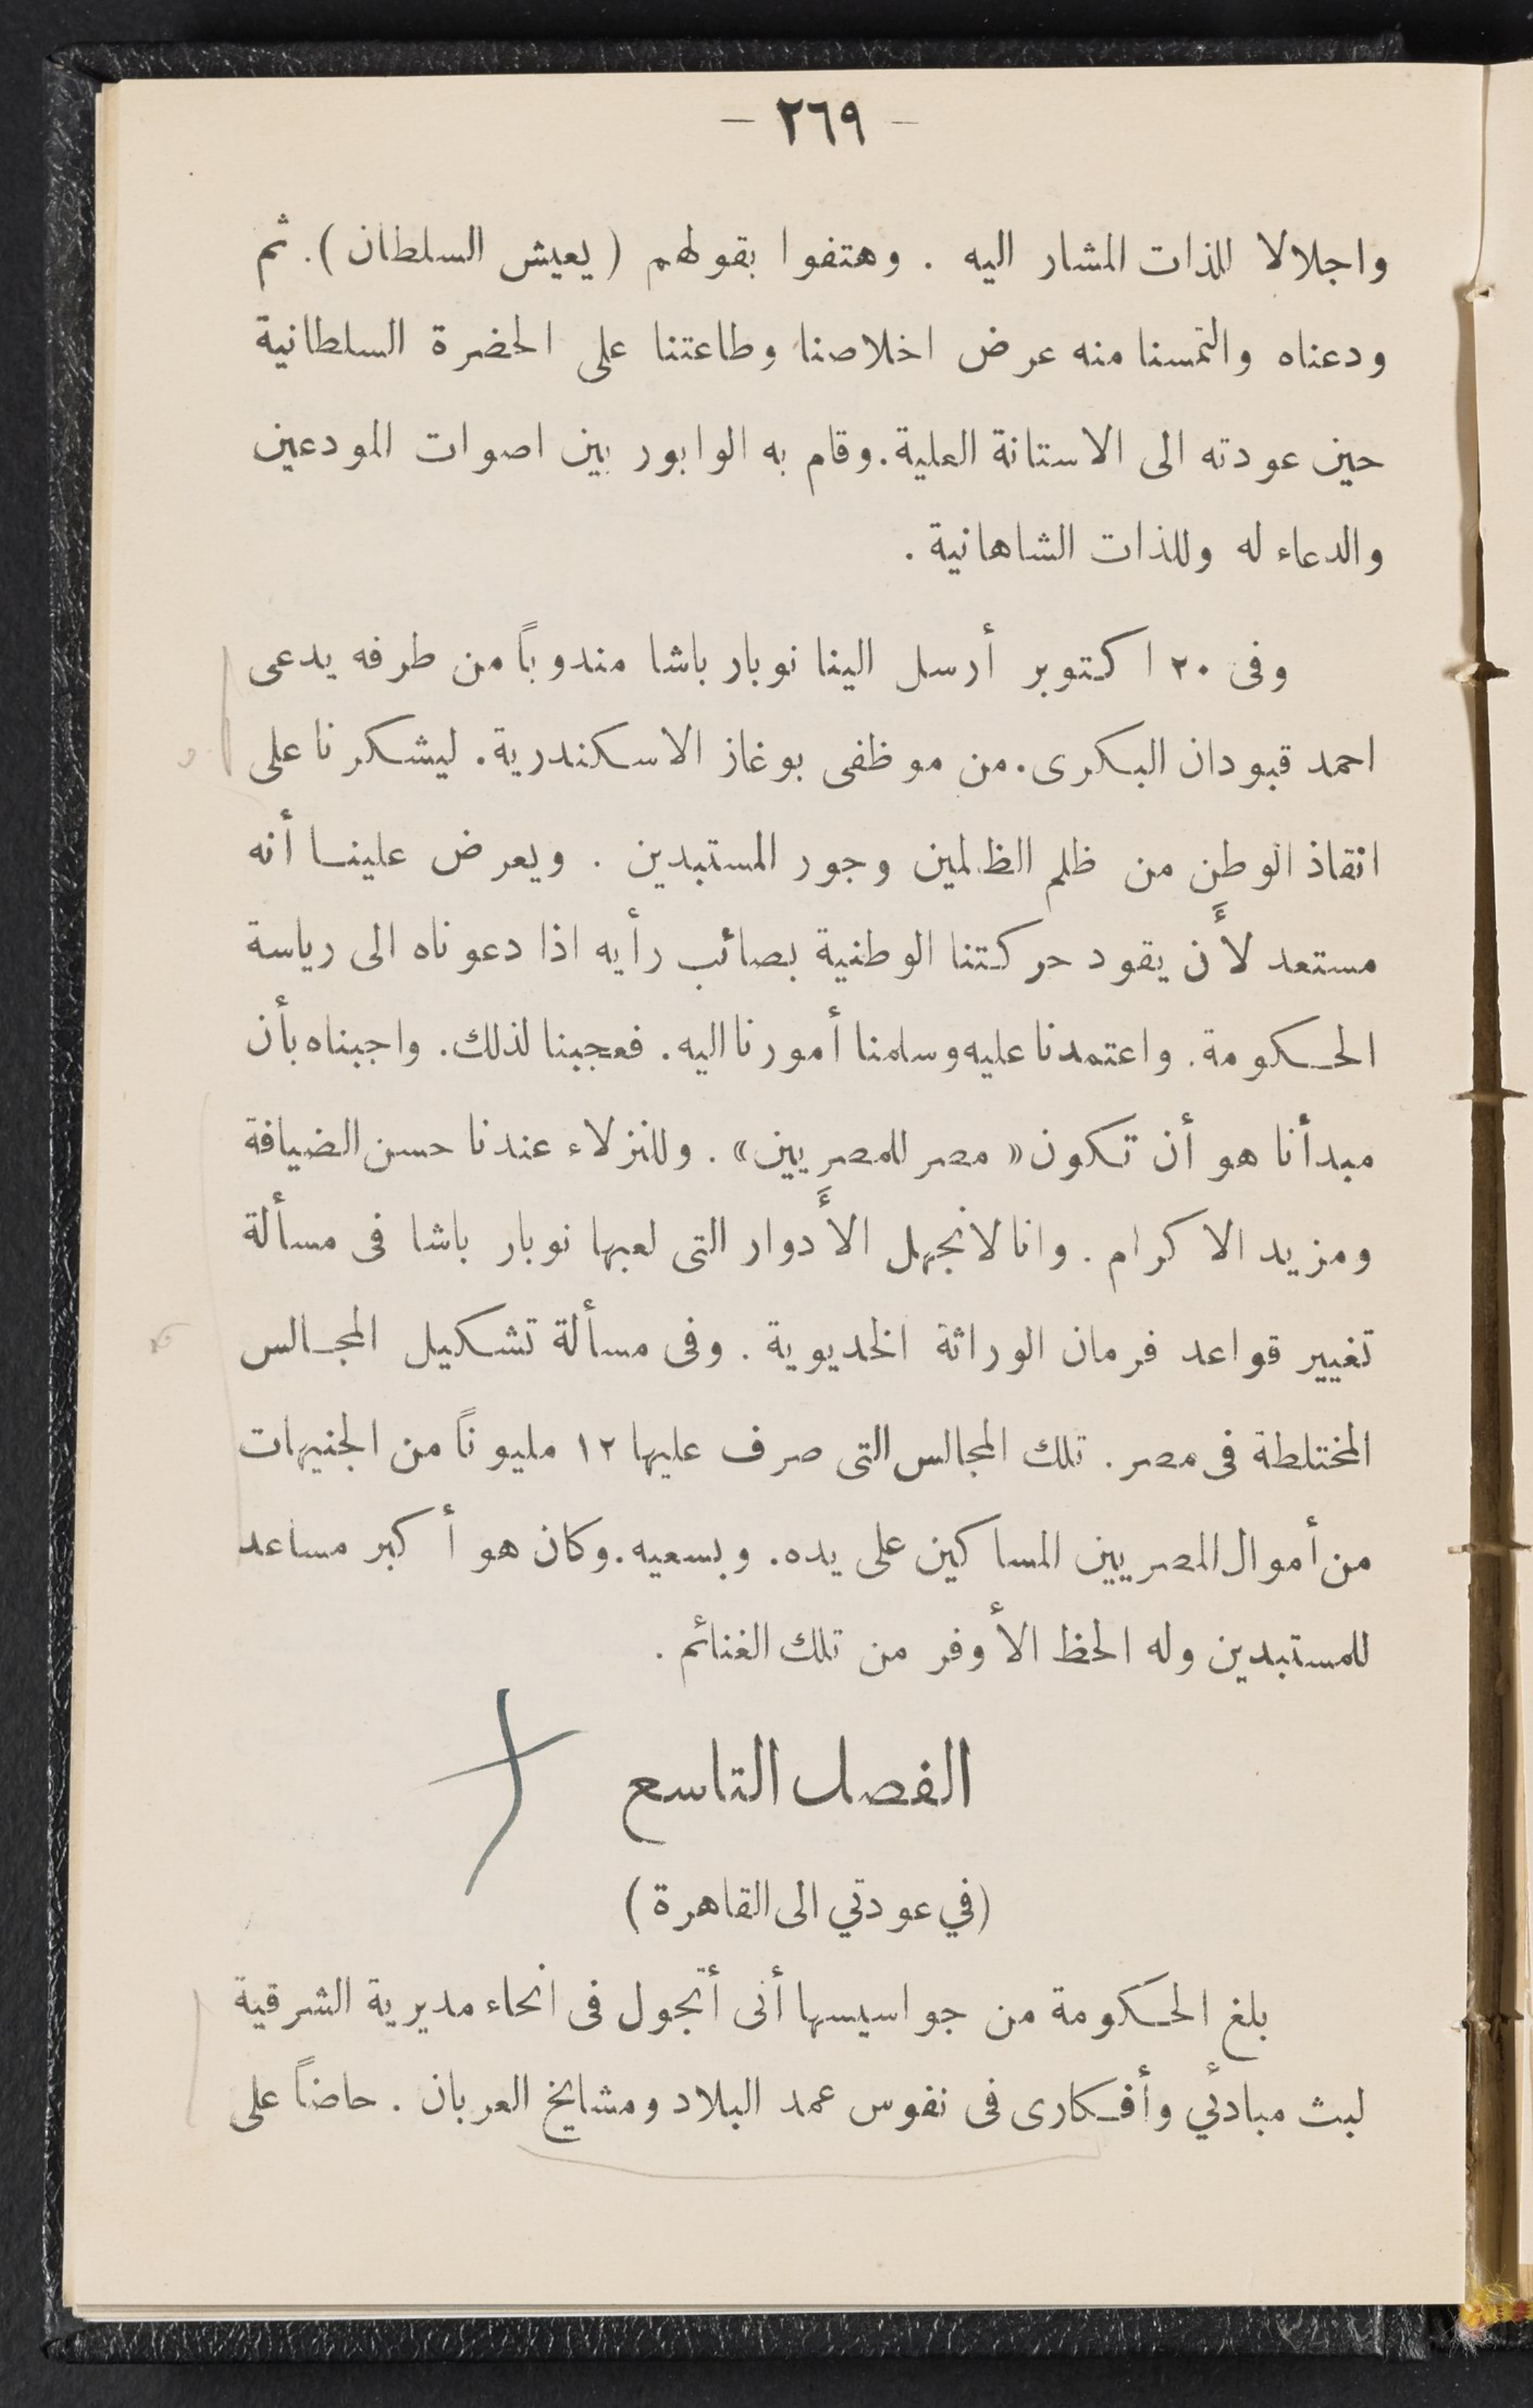 — ٢٦٩ —
واجلالا للذات المشار اليه . وهتفوا بقولهم ( يعيش السلطان ) . ثم
ودعناه والتمسنا منه عرض اخلاصنا وطاعتنا على الحضرة السلطانية
حين عودته الى الاستانة العلية . وقام به الوابور بين اصوات المودعين
والدعاء له وللذات الشاهانية .
وفى ٢٠ اكتوبر أرسل الينا نوبار باشا مندوباً من طرفه يدعى
احمد قبودان البكرى . من موظفى بوغاز الاسكندرية . ليشكرنا على
انقاذ الوطن من ظلم الظالمين وجور المستبدين . ويعرض علينا أنه
مستعد لأَن يقود حركتنا الوطنية بصائب رأيه اذا دعوناه الى رياسة
الحكومة . واعتمدنا عليه وسلمنا أمورنا اليه . فعجبنا لذلك . واجبناه بأن
مبدأنا هو أن تكون « مصر للمصريين » . وللنزلاء عندنا حسن الضيافة
ومزيد الاكرام . وانا لانجهل الأَدوار التى لعبها نوبار باشا فى مسألة
تغيير قواعد فرمان الوراثة الخديوية . وفى مسألة تشكيل المجالس
المختلطة فى مصر . تلك المجالس التى صرف عليها ١٢ مليوناً من الجنيهات
من أموال المصريين المساكين على يده . وبسعيه . وكان هو أكبر مساعد
للمستبدين وله الحظ الأوفر من تلك الغنائم .
الفصل التاسع
( في عودتي الى القاهرة )
بلغ الحكومة من جواسيسها أنى أتجول فى انحاء مديرية الشرقية
لبث مبادئي وأفكارى فى نفوس عمد البلاد ومشايخ العربان . حاضاً على